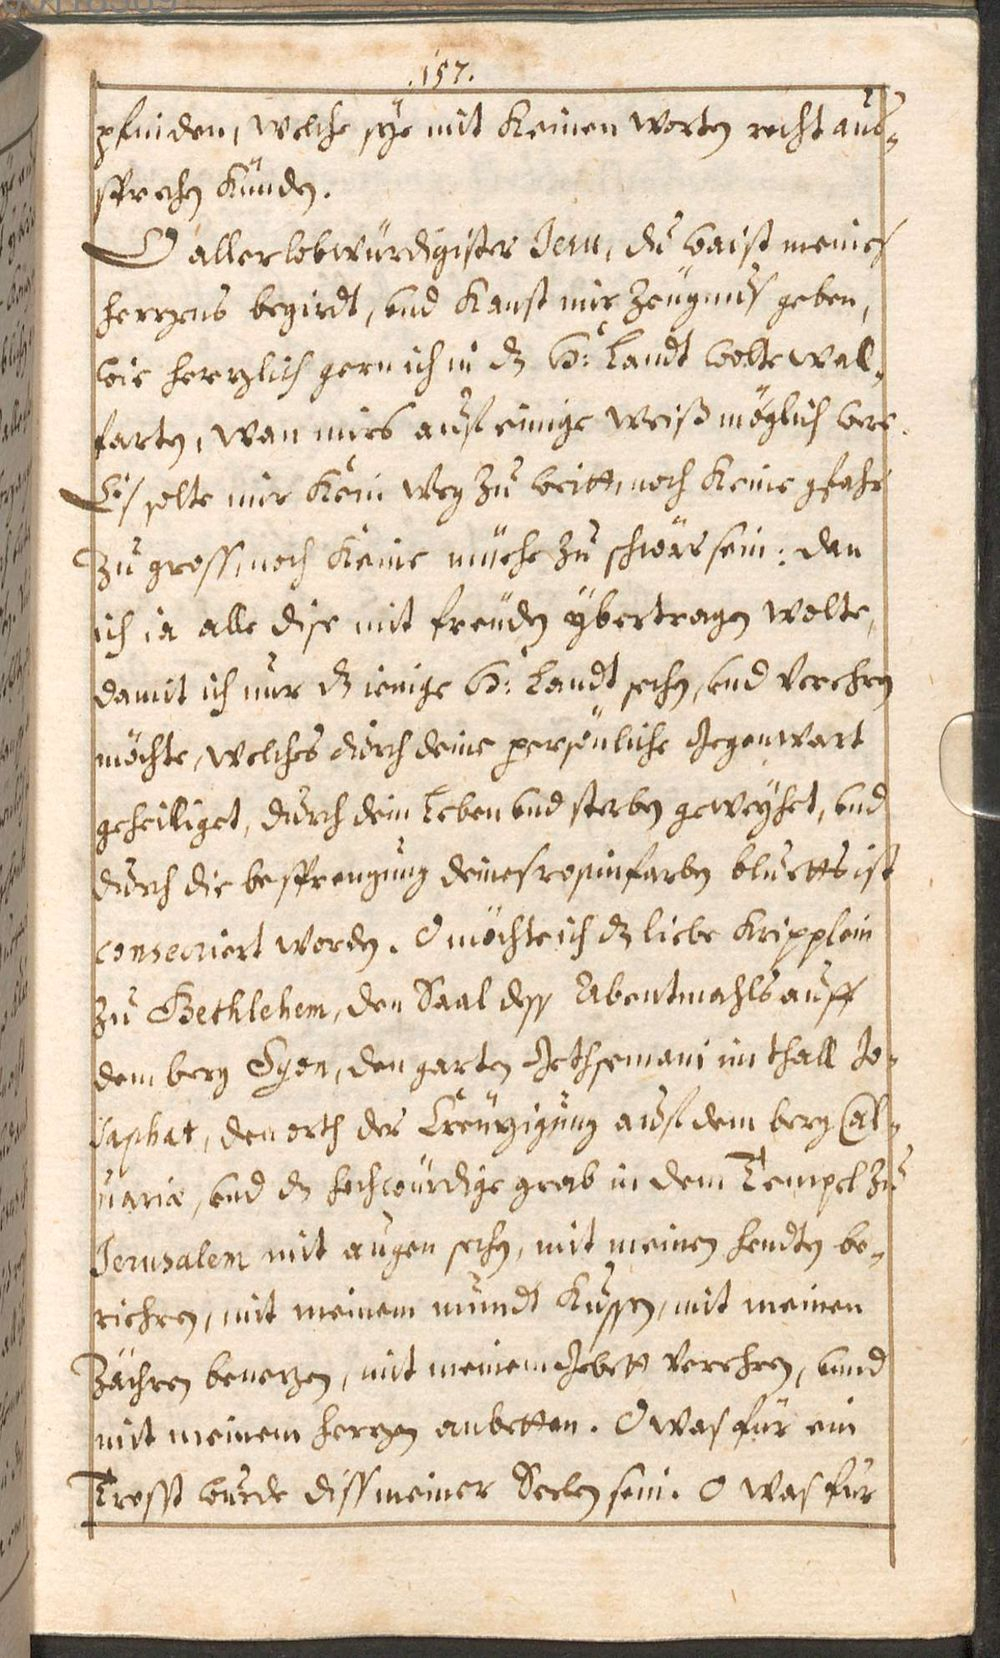 .157.
pfinden, welche sÿe mit keinen worten recht aus„
sprechen künden.
O allerlobwürdigister Jesu, du waist meines
herzens begirdt, und kanst mir zeügnus geben,
wie herzlich gern ich in dz H: Landt wolte wal„
farten, wan mirs auf einige weiß möglich were.
Es solte mir kein weg zu weitt, noch keine gfahr
zu gross, noch keine müehe zu schwär sein: dan
ich ia alle dise mit freüden ÿbertragen wolte,
damit ich nur dz ienige H: Landt sechen, und verehren
möchte, welches durch deine persönliche gegenwart
geheilliget, durch dein Leben und sterben geweÿhet, und
durch die besprengung deines rosinfarben bluetts ist
consecriert worden. O möchte ich dz liebe kripplein
zu Bethlehem, den Saal dess Abentmahls auff
dem berg Syon, den garten Gethsemani im thall Jo„
saphat, den orth der Creützigung auf dem berg Cal„
uariæ, und dz hochwürdige grab in dem Tempel zu
Jerusalem mit augen sechen, mit meinen hendten be„
riehren, mit meinem mundt küssen, mit meinen
Zächren benezen, mit meinem gebett verehren, unnd
mit meinem herzen anbetten. O was für ein
Trosst wurde diss meiner Seelen sein. O was für